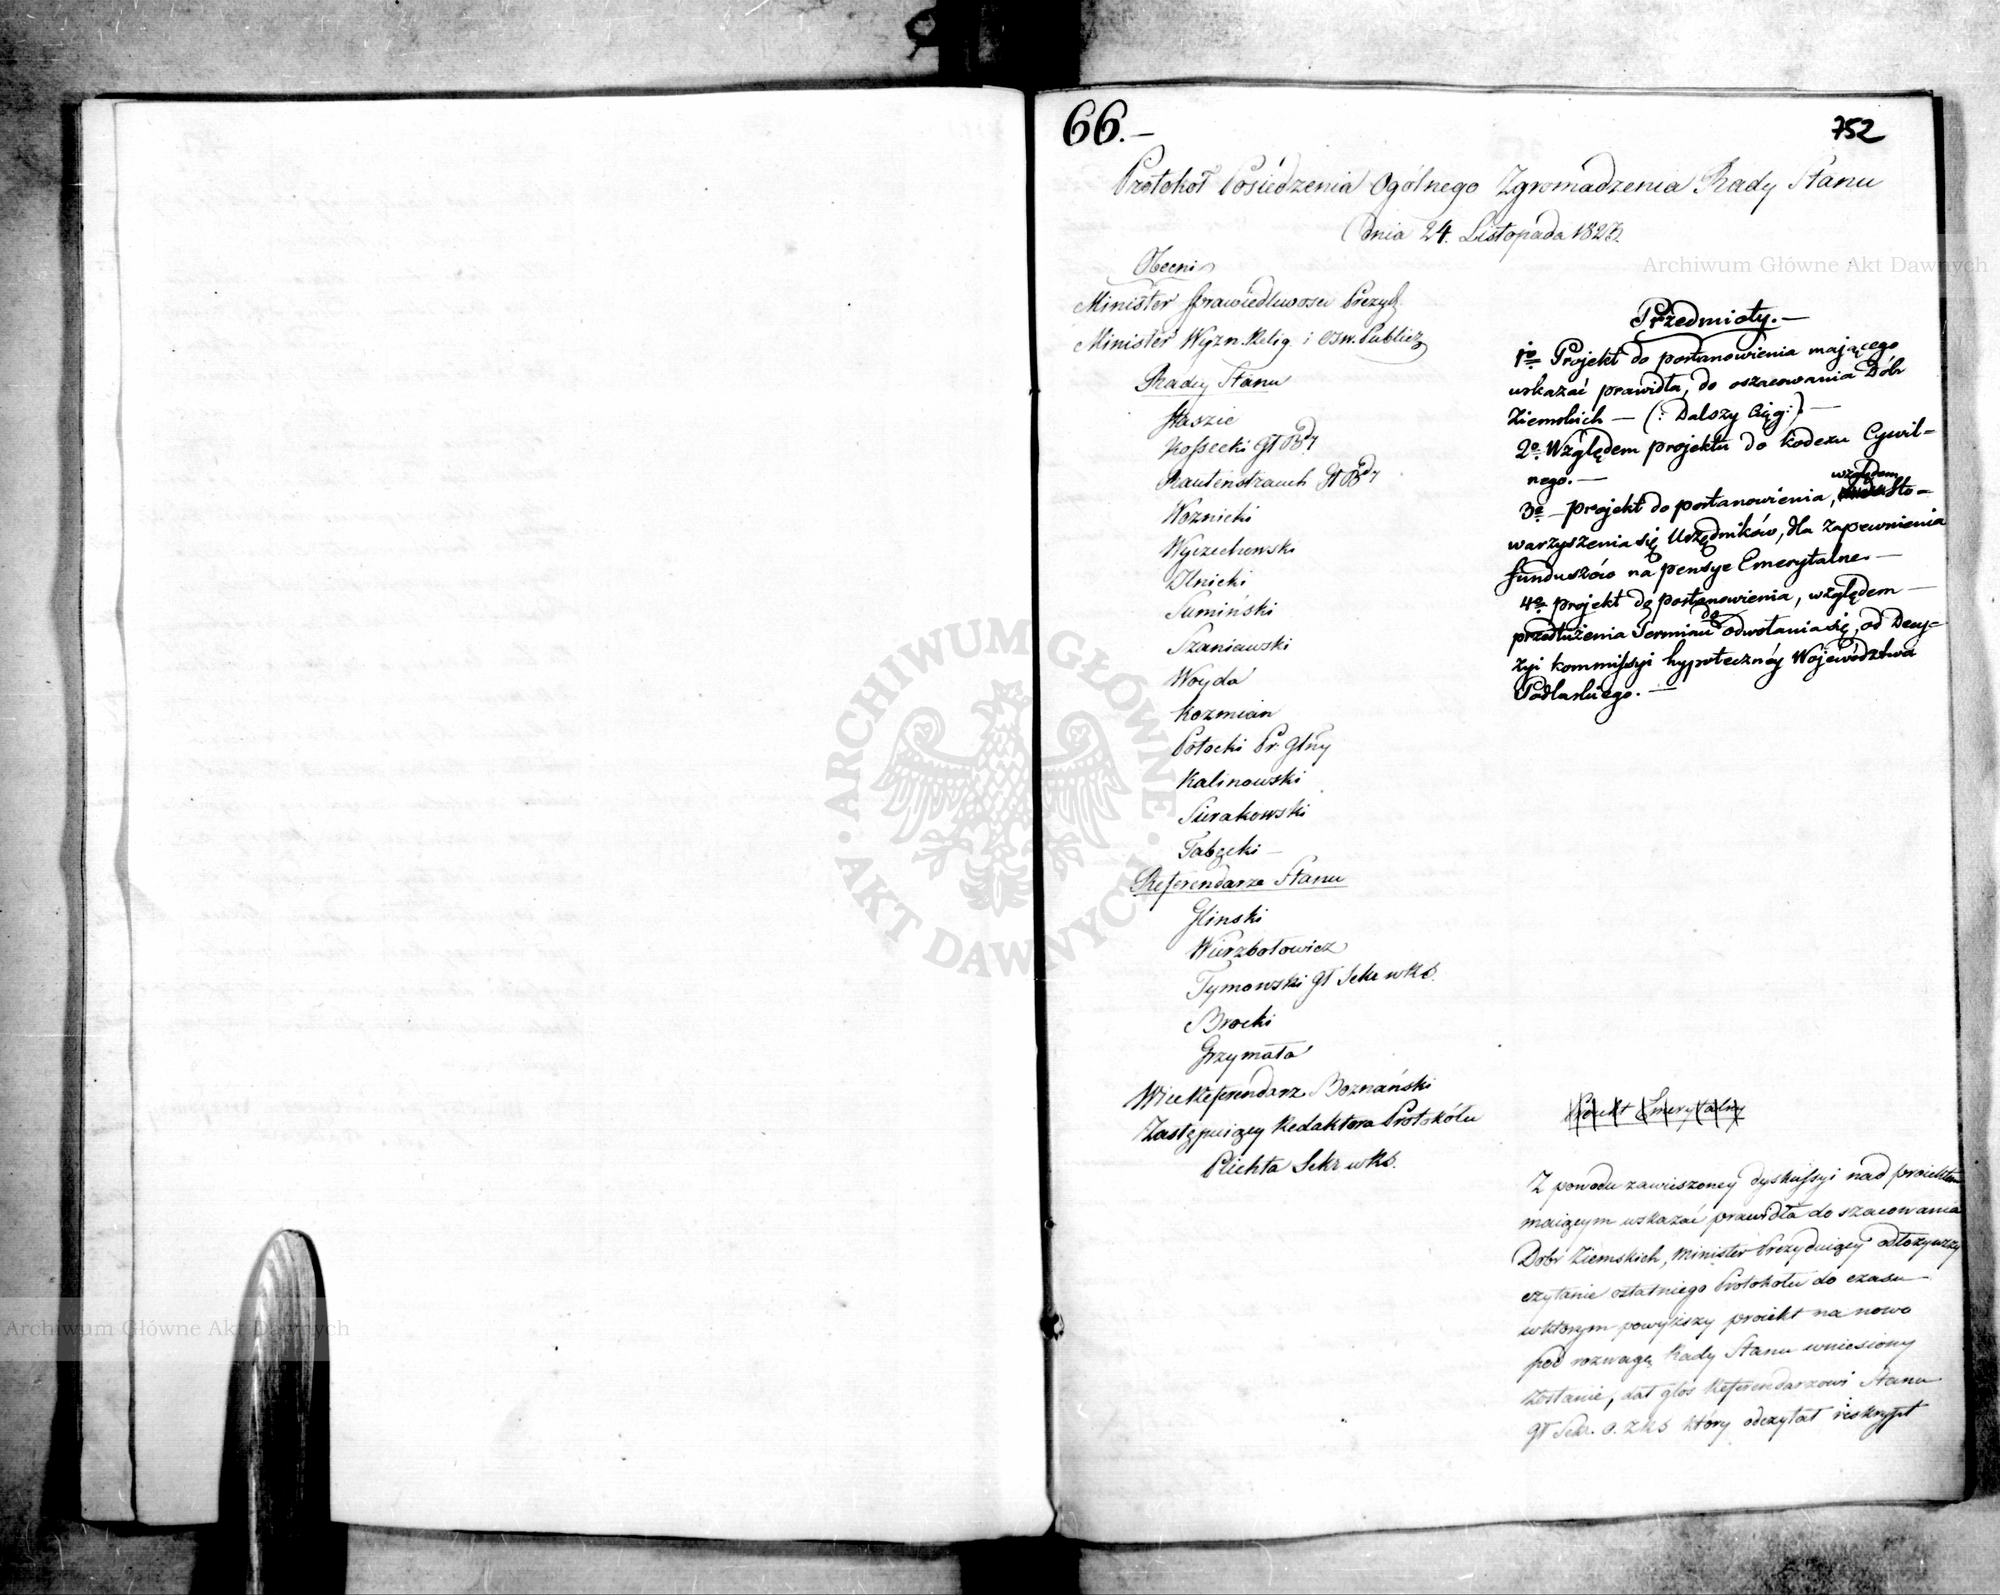 66.—
752
Protokół Posiedzenia Ogólnego Zgromadzenia Rady Stanu
Dnia 24. Listopada 182
Obecni
Minister Sprawiedliwosci Prezyd.
Minister Wyzn. Relig. i Osw. Publicz
Radcy Stanu
Staszic
Kossecki
Rautenstrauch
Woznicki
Wyczechowski
Ilnicki
Sumiński
Szaniawski
Woyda
Kozmian
Potocki Pr. Głny
Kalinowski
Sierakowski
Tabęcki —
Referendarze Stanu
Glinski
Wierzbołowicz
Tymowski Gł Sekr w RS.
Brocki
Grzymała
Wice Referendarz Boznański
Zastępuiący Redaktora Protokółu
Plichta Sekr w RS.
Przedmioty.—
1o Projekt do postanowienia mającego
wskazać prawidła, do oszacowania Dóbr
Ziemskich — (: Dalszy Ciąg :) —
2o Względem projektu do kodexu Cywil=
nego. —
3o — projekt do postanowienia, względem Sto=
warzyszenia się Urzędników, dla zapewnienia
funduszów na pensye Emerytalne. —
4o projekt do postanowienia, względem —
przedłużenia Terminu do odwołania się, od Decy=
zyi kommissyi hypoteczney Województwa
Podlaskiego. —
Proiekt Emerytalny
Z powodu zawieszoney dyskussyi nad proiektem
maiącym wskazać prawidła do szacowania
Dóbr Ziemskich, Minister Prezyduiący odłożywszy
czytanie ostatniego Protokołu do czasu
w którym powyższy proiekt na nowo
pod rozwagę Rady Stanu wniesiony
zostanie, dał głos Referendarzowi Stanu
Gł Sekr. który odczytał reskrypt
Archiwum Główne Akt Dawnych
Archiwum Główne Akt Dawnych
ARCHIWUM GŁÓWNE · AKT DAWNYCH ·